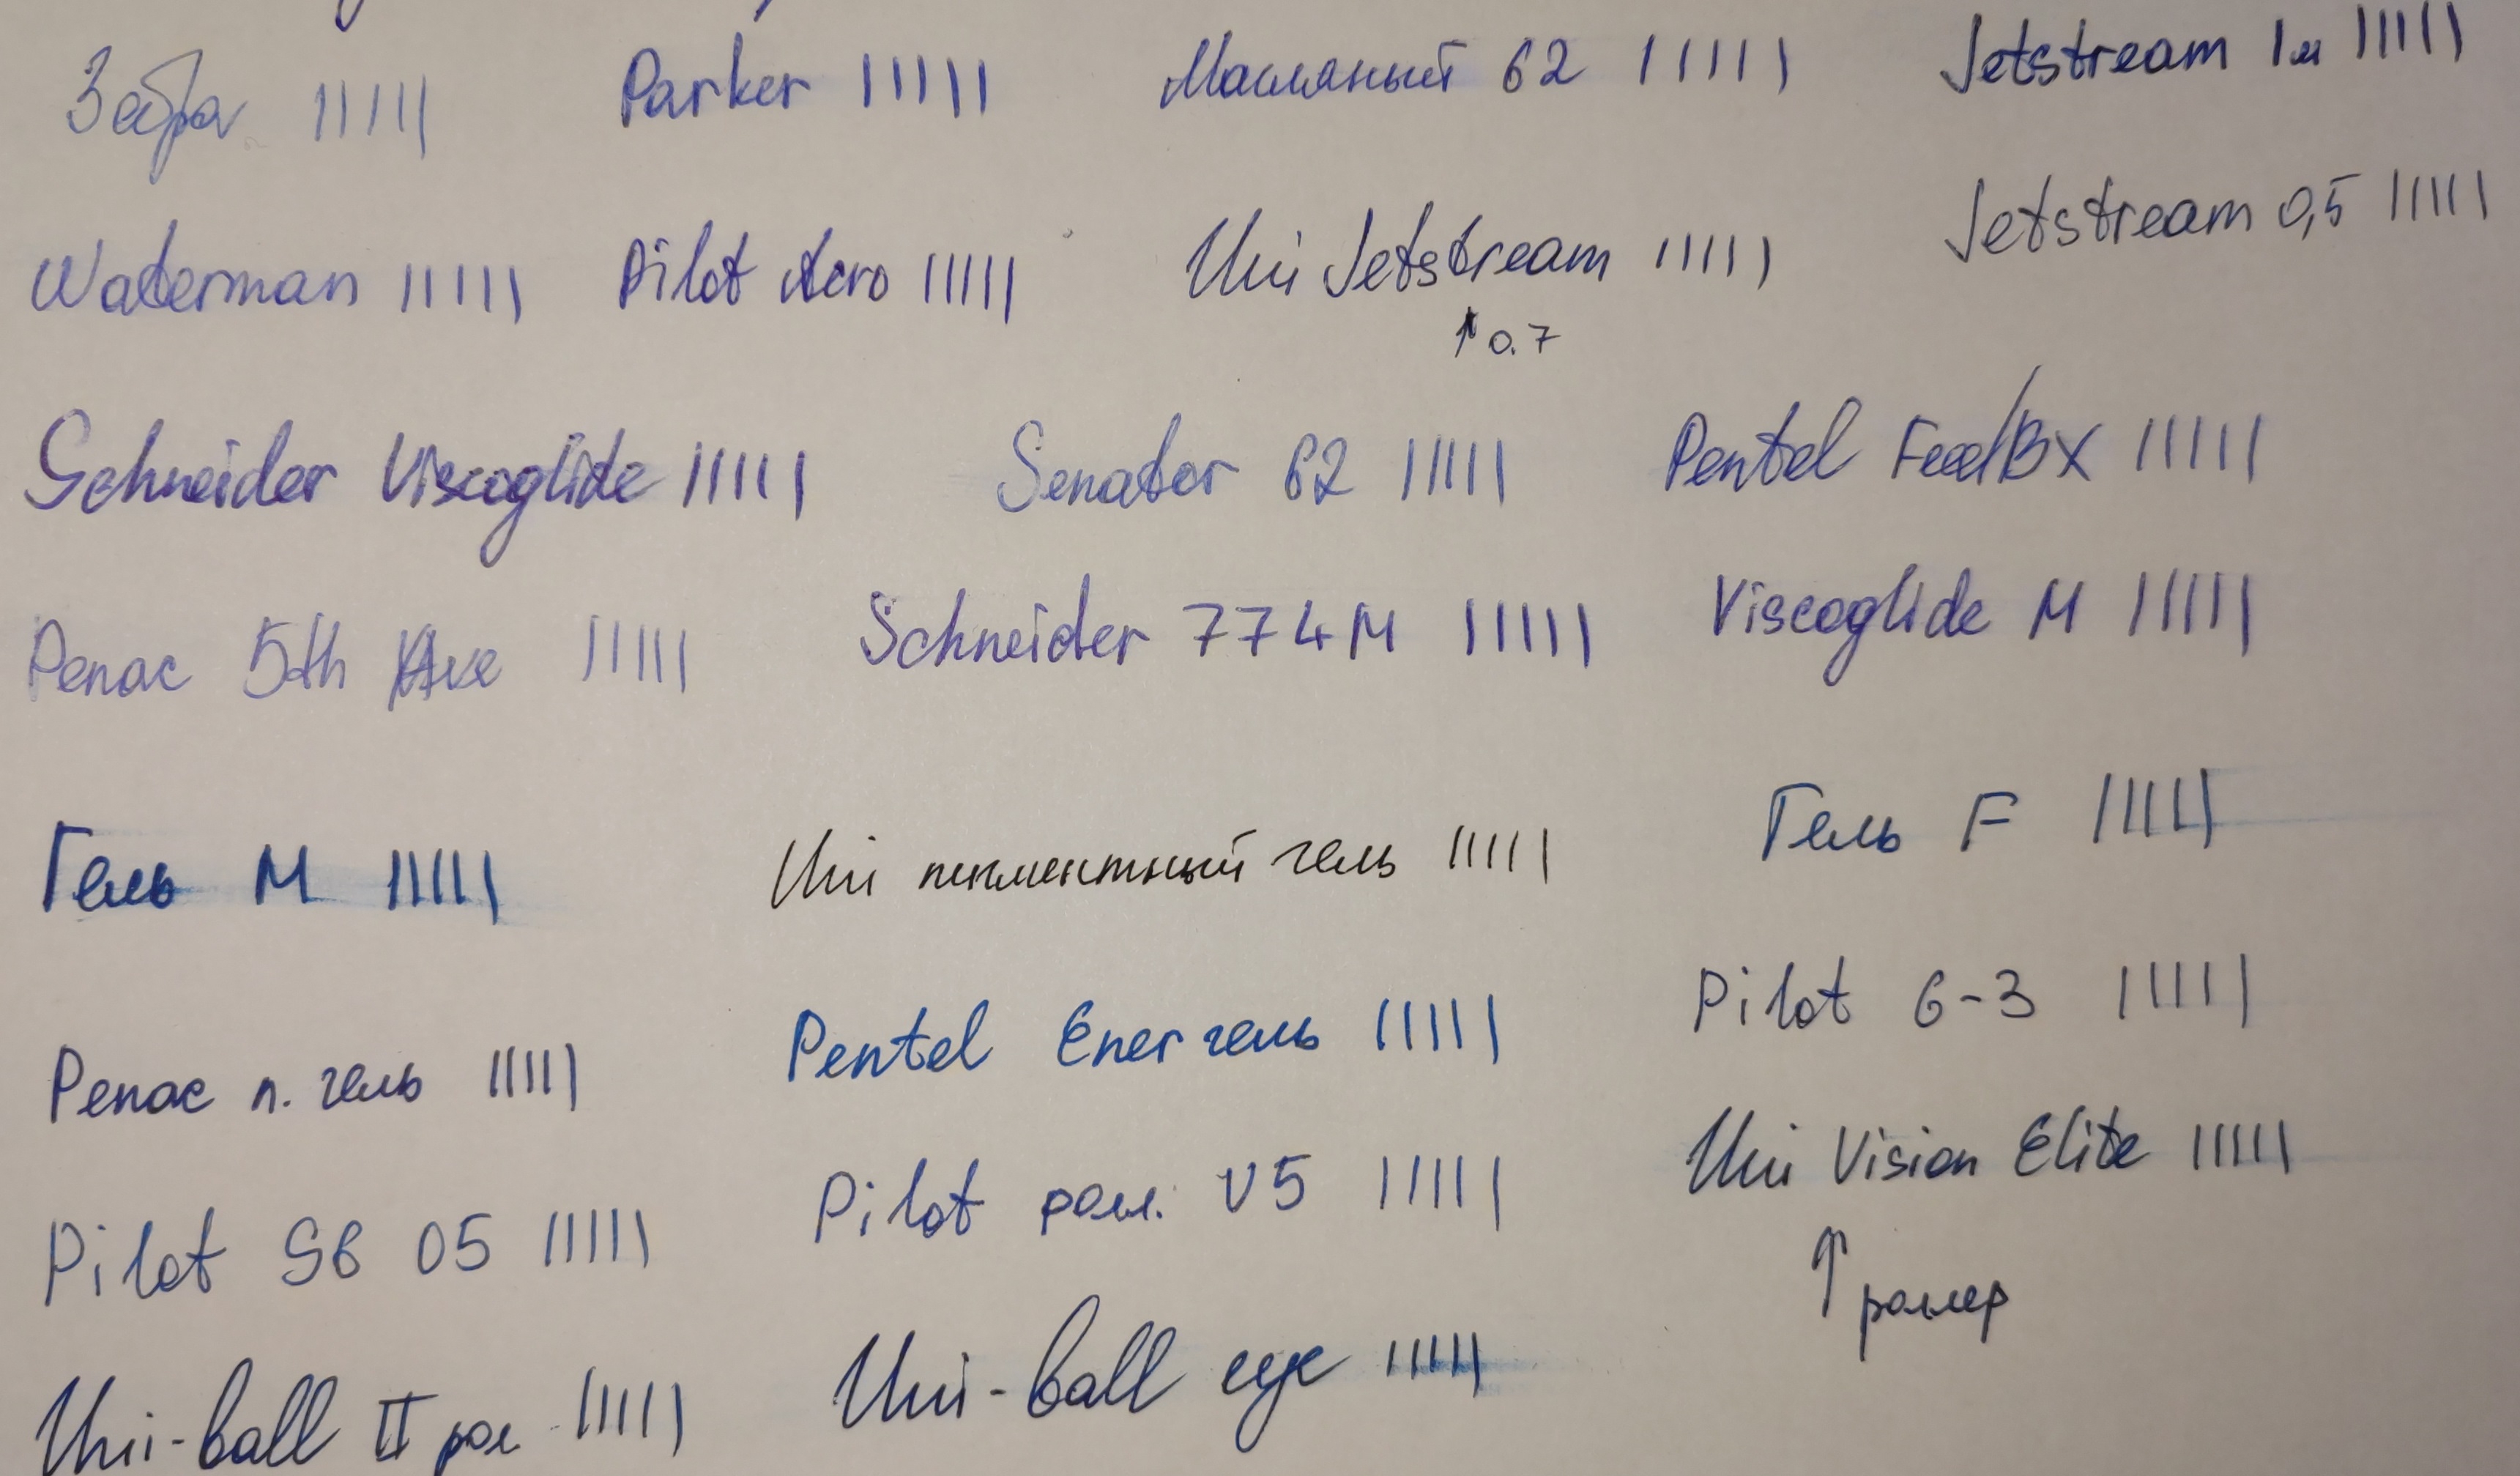 Зебра ||||| Parker ||||| Масляный 62 ||||| Jetstream 1м |||||
Waterman ||||| Pilot Acro ||||| Uni Jetstream ||||| Jetstream 0,5 |||||
↑ 0.7
Schneider Viscoglide ||||| Senator 62 ||||| Pentel Feel/BX |||||
Penac 5th Ave ||||| Schneider 774 M ||||| Viscoglide M |||||
Гель M ||||| Uni пигментный гель ||||| Гель F |||||
Penac п. гель ||||| Pentel Enerгель ||||| Pilot G-3 |||||
Pilot ||||| Pilot рол. V5 ||||| Uni Vision Elite |||||
↑ роллер
Uni-ball II рол ||||| Uni-ball eye |||||